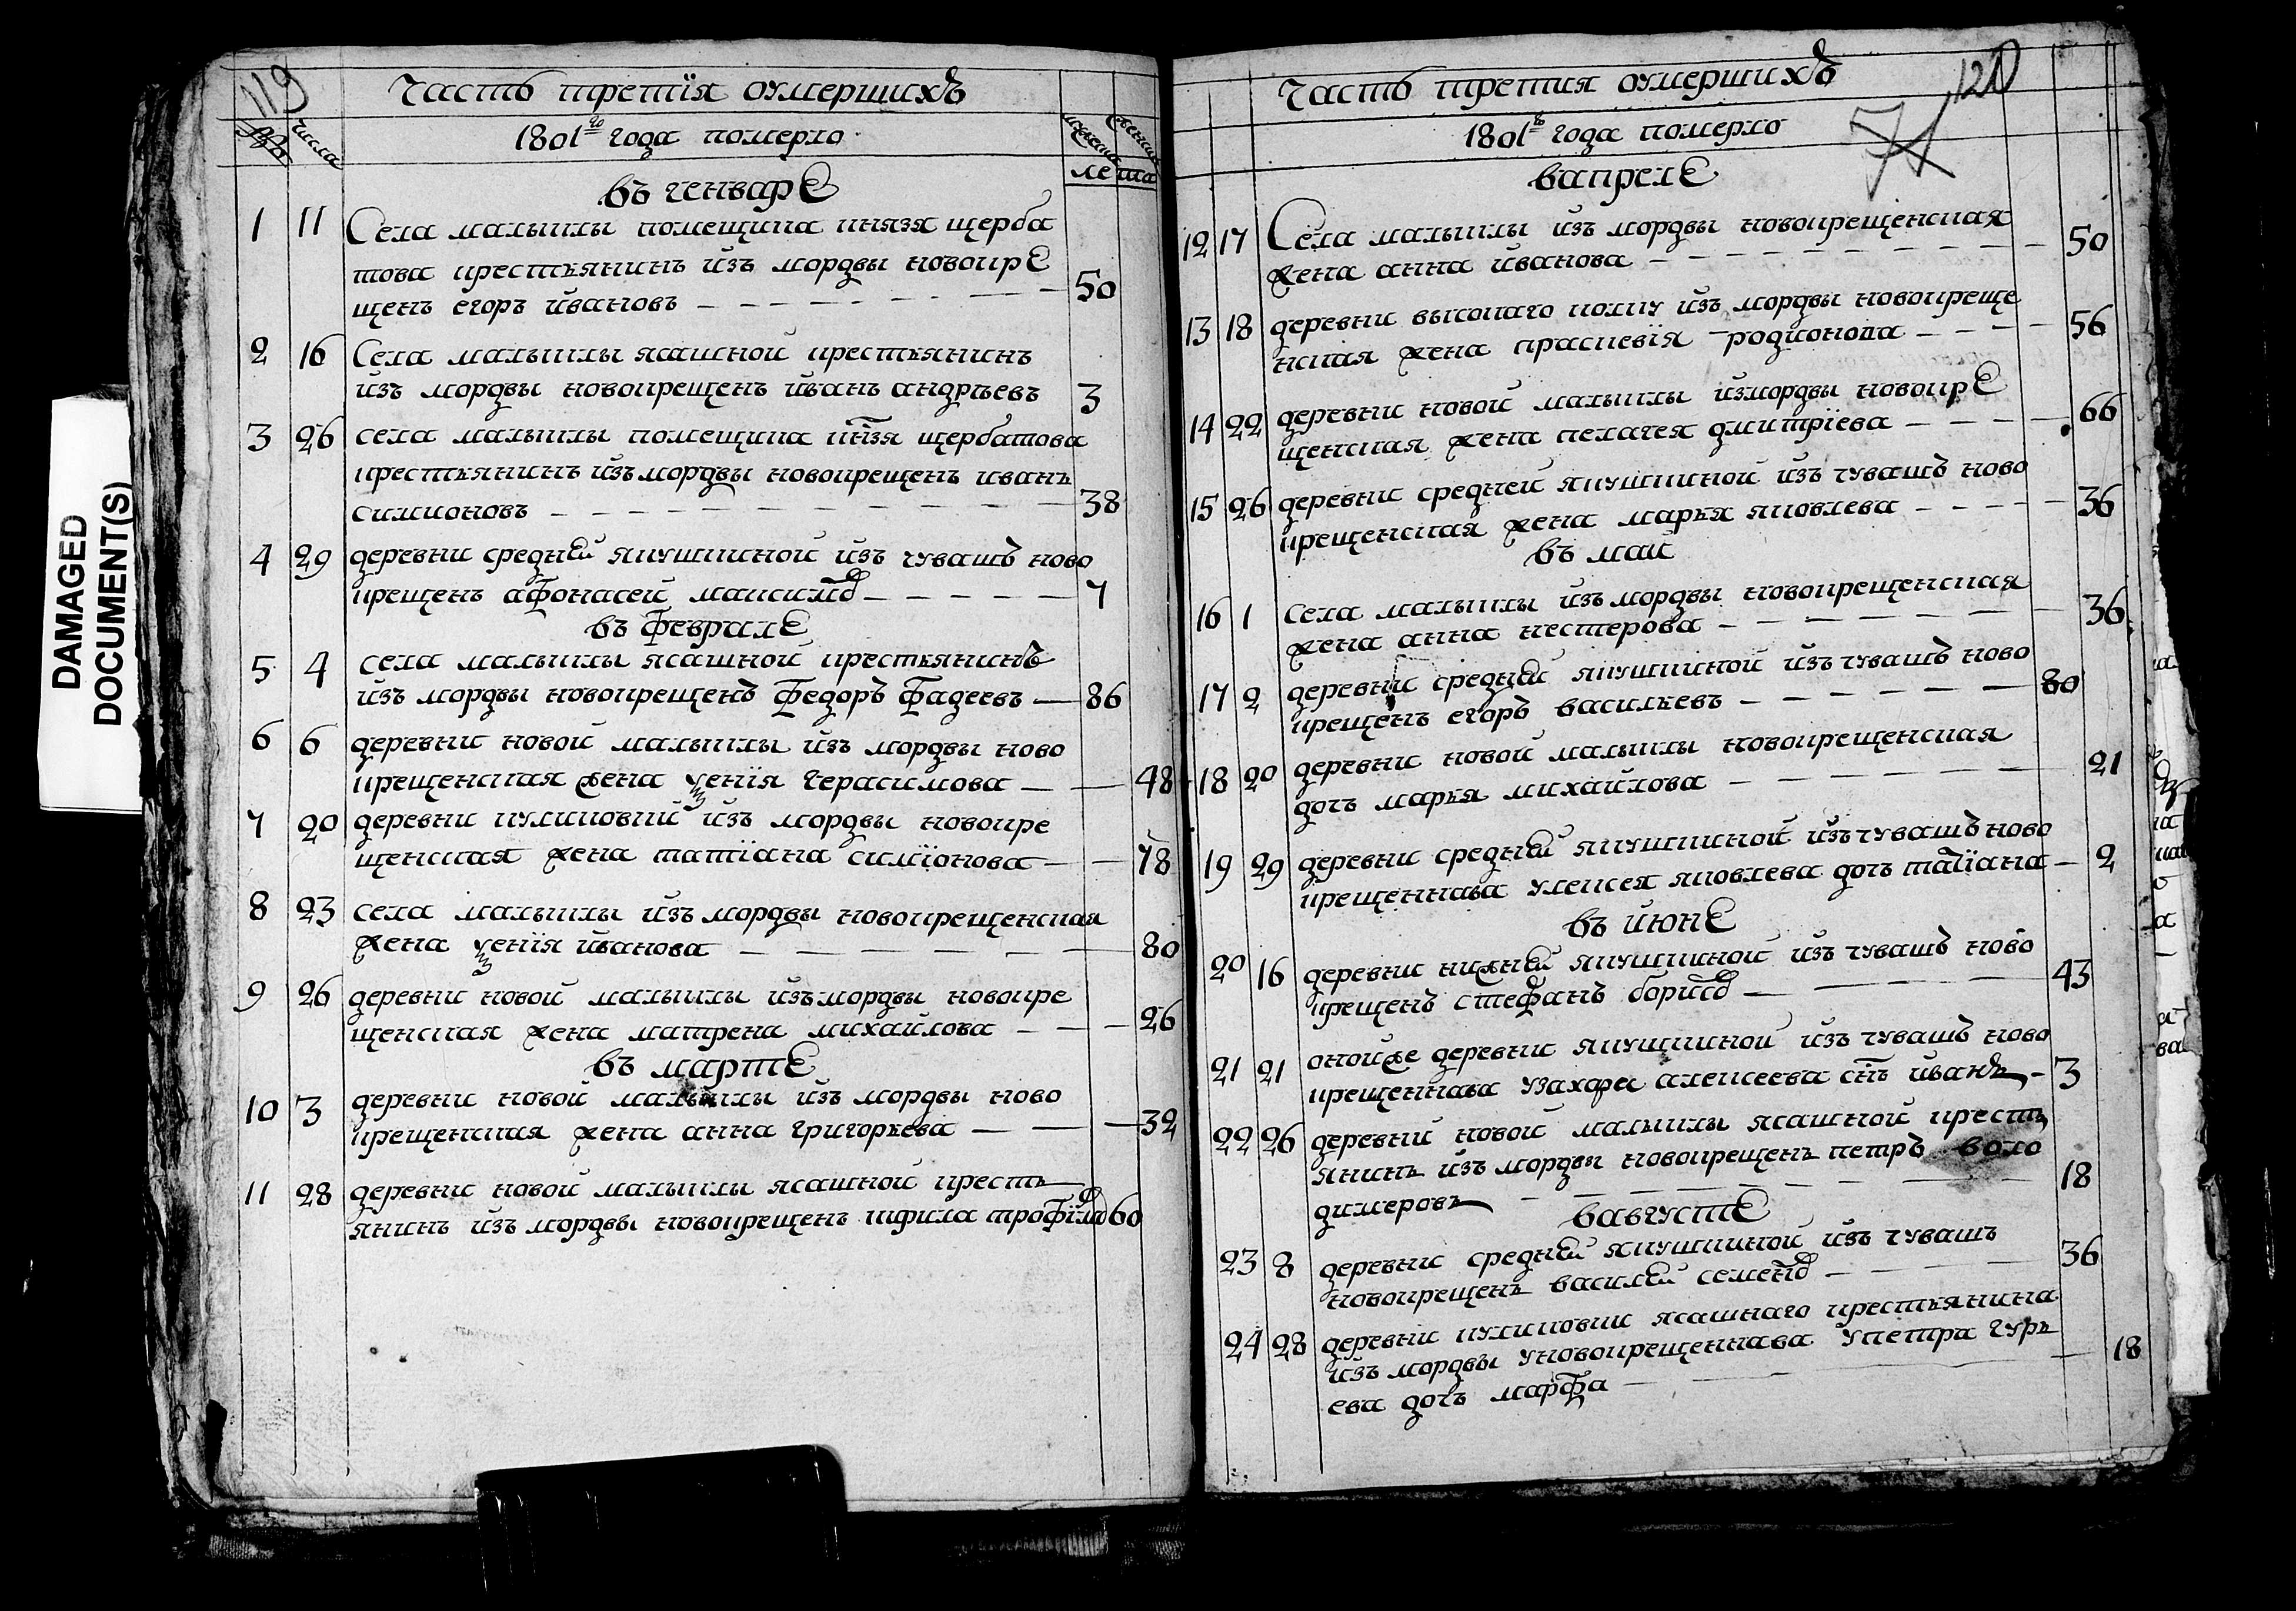 119
Часть третïя оумершихъ
№ числа
1801го года померло
мужеска женска
лета
въ генваре
1 11 Села малыклы помещика князя щерба
това крестьянинъ изъ мордвы новокре
щенъ егоръ ивановъ 50
2 16 Села малыклы ясашной крестьянинъ
изъ мордвы новокрещенъ иванъ андрѣевъ 3
3 26 села малыклы помещика кнзя щербатова
крестьянинъ изъ мордвы новокрещенъ иванъ
симионовъ 38
4 29 деревни средней якушкиной изъ чувашъ ново
крещенъ афонасей максимо 7
въ феврале
5 4 села малыклы ясашной крестьянинъ
изъ мордвы новокрещенъ федоръ фадеевъ 86
6 6 деревни новой малыклы изъ мордвы ново
крещенская жена ѯенïя герасимова 48
7 20 деревни куликовки изъ мордвы новокре
щенская жена татïана симïонова 78
8 23 села малыклы изъ мордвы новокрещенская
жена ѯенïя иванова 80
9 26 деревни новой малыклы изъ мордвы новокре
щенская жена матрена михайлова 26
въ марте
10 3 деревни новой малыклы изъ мордвы ново
крещенская жена анна григорьева 32
11 28 деревни новой малыклы ясашной кресть
янинъ изъ мордвы новокрещенъ трофимо 60
DAMAGED
DOCUMENT(S)
120
71
Часть третия оумершихъ
1801го года померло
вапреле
12 17 Села малыклы изъ мордвы новокрещенская
жена анна иванова 50
13 18 деревни высокаго колку изъ мордвы новокреще
нская жена прасковïя родионова 56
14 22 деревни новой малыклы измордвы новокре
щенская жена пелагея дмитрïева 66
15 26 деревни средней якушкиной изъ чувашъ ново
крещенская жена марья яковлева 36
въ маи
16 1 села малыклы изъ мордвы новокрещенская
жена анна нестерова 36
17 2 деревни средней якушкиной изъ чувашъ ново
крещенъ егоръ васильевъ 80
18 20 деревни новой малыклы новокрещенская
дочь марья михайлова 21
19 29 деревни средней якушкиной изъ чувашъ ново
крещеннава улексея яковлева дочь татïана 2
въ июне
20 16 деревни нижней якушкиной изъ чувашъ ново
крещенъ стефанъ борисо 43
21 21 онойже деревни якушкиной изъ чувашъ ново
крещеннава узахара алексеева снъ иванъ 3
22 26 деревни новой малыклы ясашной кресть
янинъ изъ мордвы новокрещенъ петръ воло
димеровъ 18
вавгусте
23 8 деревни средней якушкиной изъ чувашъ
новокрещенъ василей семено 36
24 28 деревни куликовки ясашнаго крестьянина
изъ мордвы уновокрещеннава упетра гурь
ева дочь марфа 18